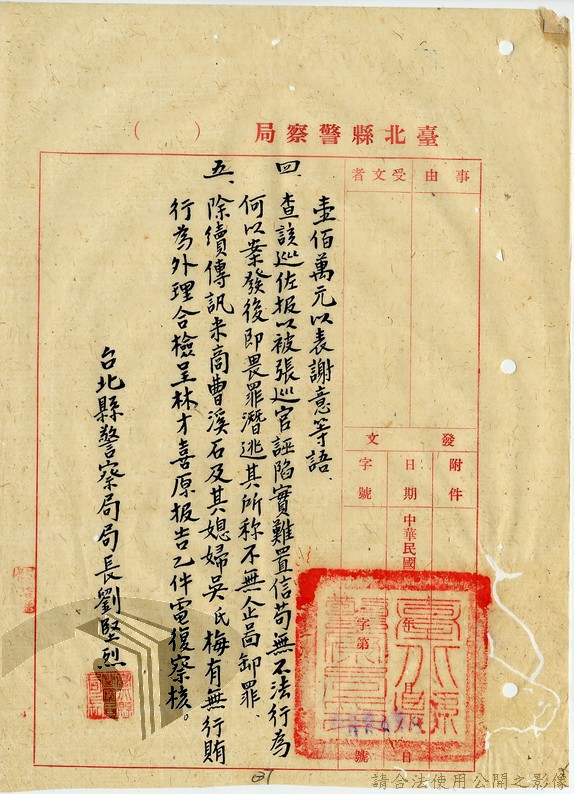 臺北縣警察局（　）
事由
受文者
發文
附件
日期
字號
中華民國
年
月
日
字第
號
壹佰萬元以表謝意等語．
四、查該巡佐报以被張巡官誣陷實難置信苟無不法行為
何以案發後即畏罪潛逃其所称不無企啚卸罪．
五、除續傳訊米商曹溪石及其媳婦吳氏梅有無行賄
行為外理合檢呈林才喜原报告乙件電復察核。
台北縣警察局局長劉堅烈
請合法使用公開之影像